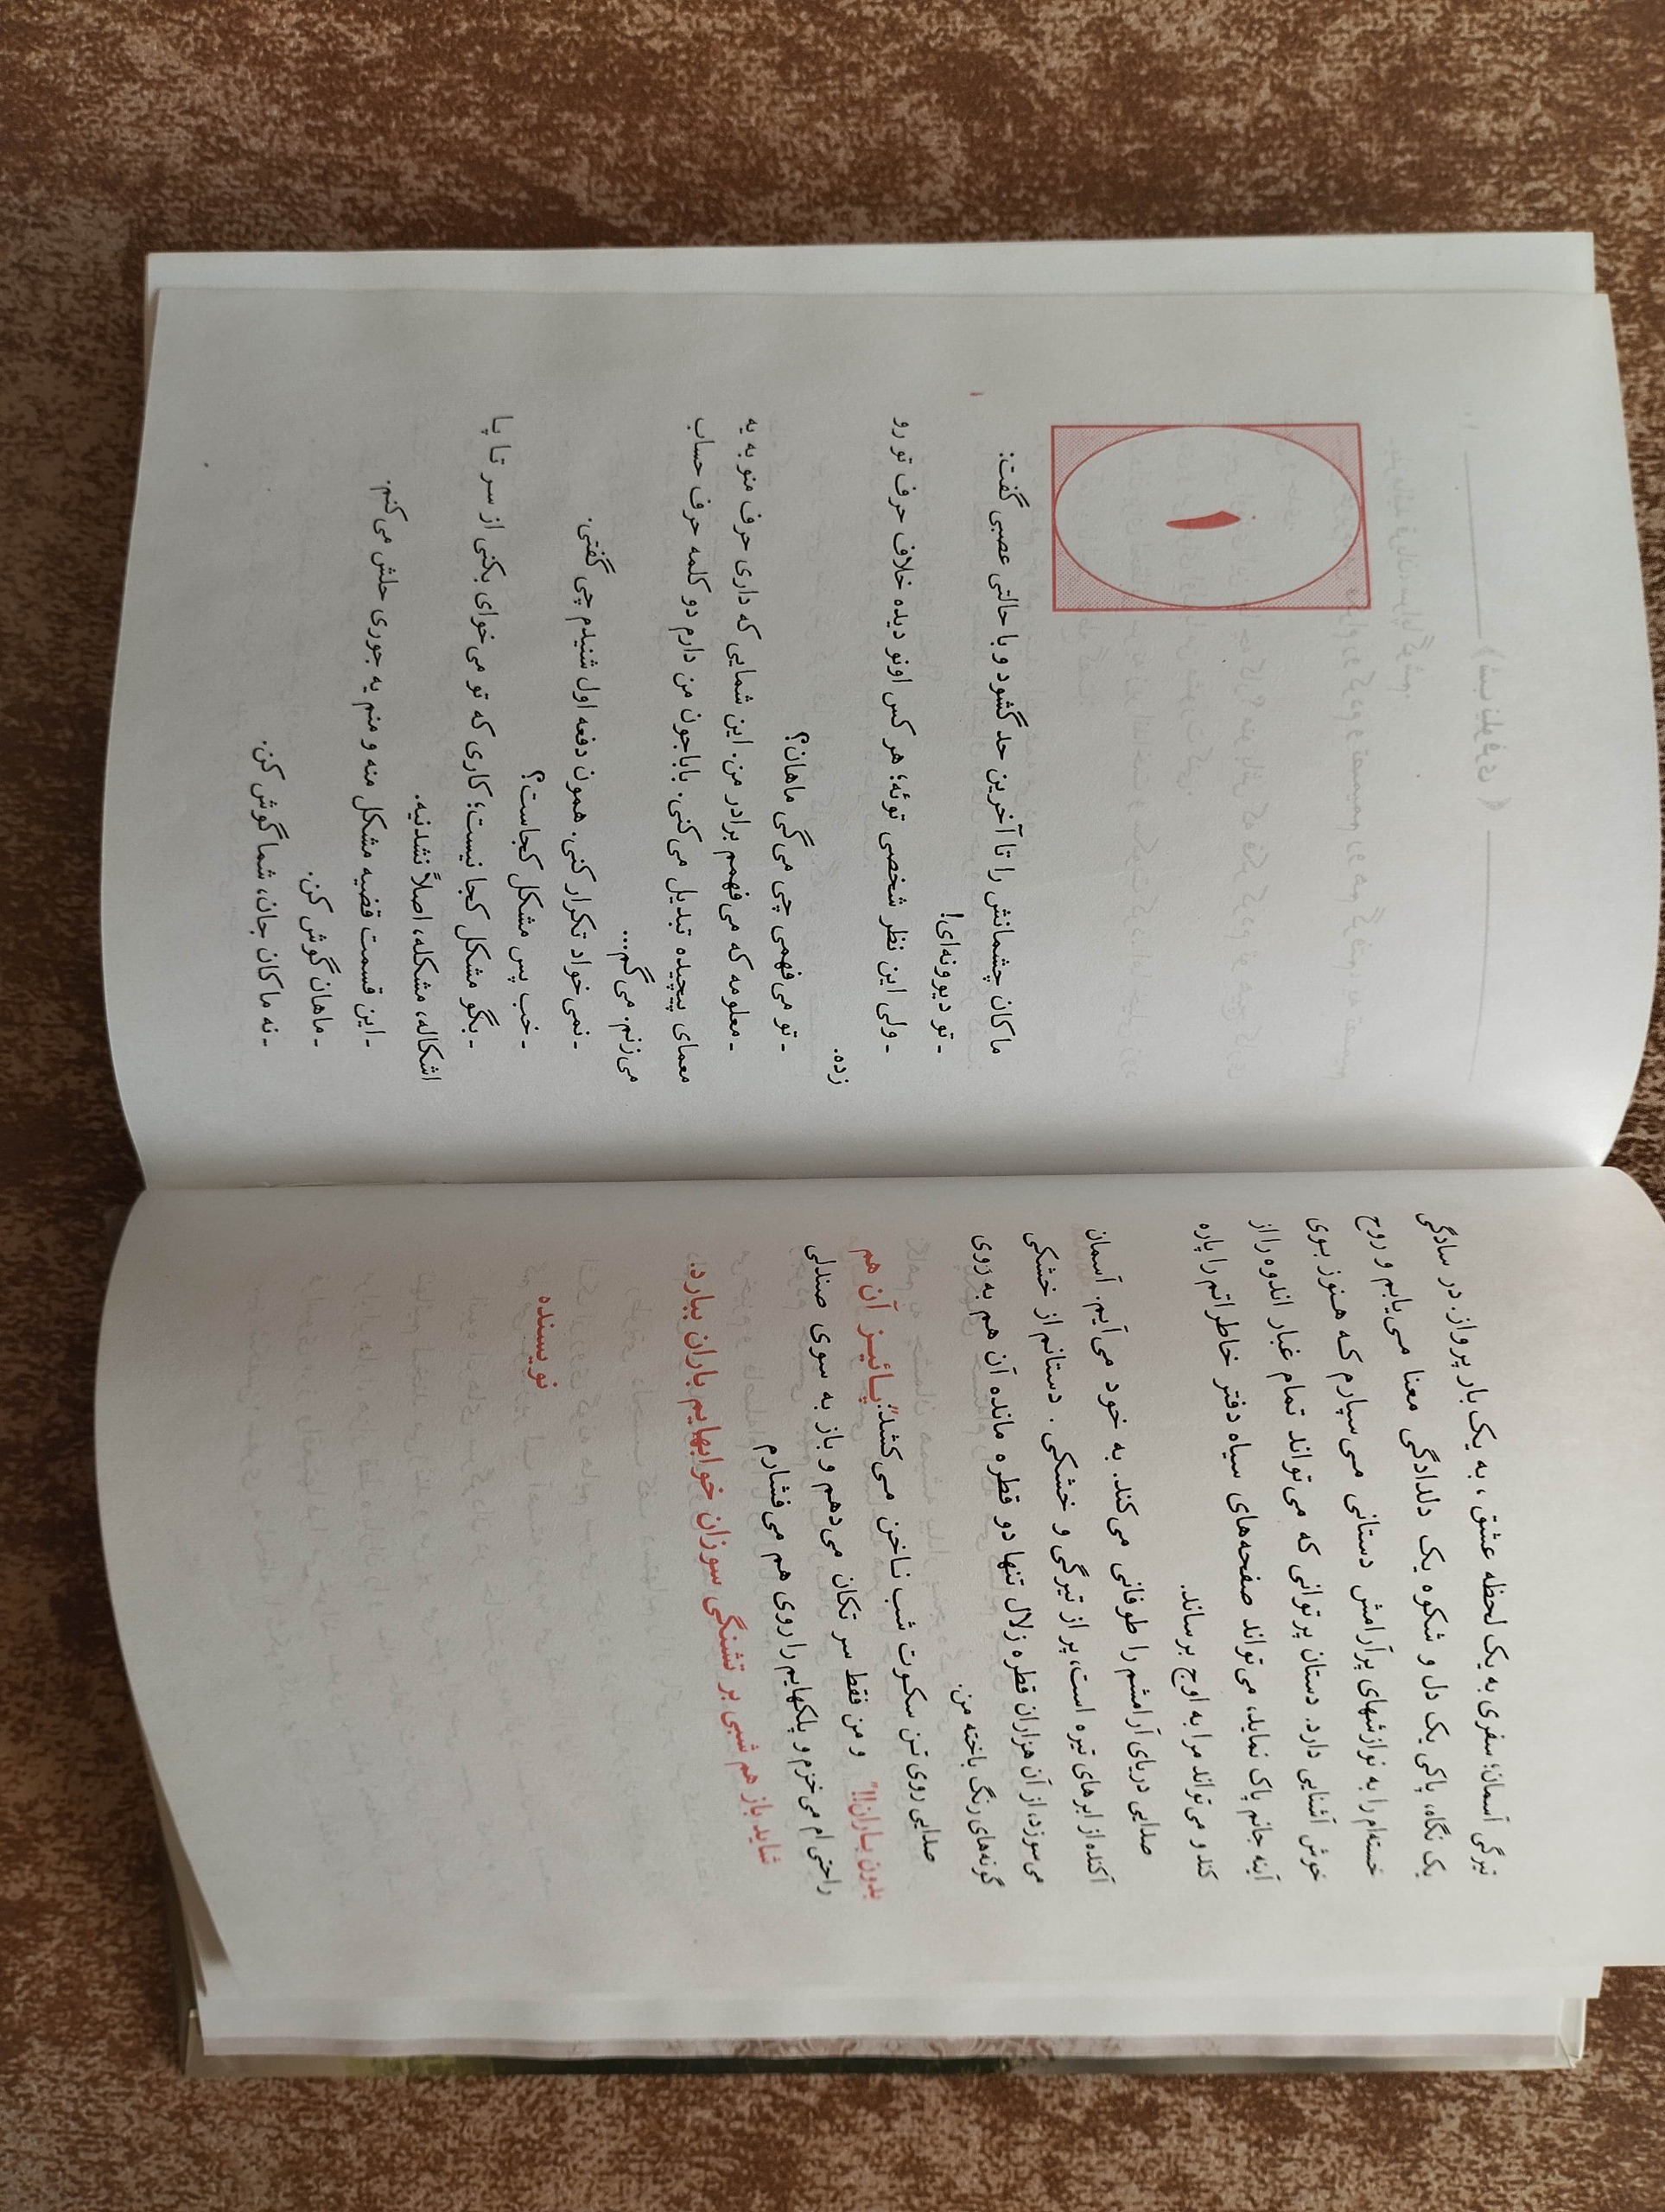 تیرگی آسمان؛ سفری به یک لحظه عشق، به یک بار پرواز. در سادگی
یک نگاه، پاکی یک دل و شکوه یک دلدادگی معنا می‌یابم و روح
خسته‌ام را به نوازشهای پرآرامش دستانی می‌سپارم که هنوز بوی
خوش آشنایی دارد. دستان پر توانی که می‌تواند تمام غبار اندوه را از
آینه جانم پاک نماید، می‌تواند صفحه‌های سیاه دفتر خاطراتم را پاره
کند و می‌تواند مرا به اوج برساند.
صدایی دریای آرامشم را طوفانی می‌کند. به خود می‌آیم. آسمان
آکنده از ابرهای تیره است، پر از تیرگی و خشکی. دستانم از خشکی
می‌سوزد، از آن هزاران قطره زلال تنها دو قطره مانده آن هم به روی
گونه‌های رنگ باخته من.
صدایی روی تن سکوت شب ناخن می‌کشد: "پائیز آن هم
بدون باران!!" و من فقط سر تکان می‌دهم و باز به سوی صندلی
راحتی ام می‌خزم و پلکهایم را روی هم می‌فشارم
شاید باز هم شبی بر تشنگی سوزان خوابهایم باران ببارد.
نویسنده
۱
ماکان چشمانش را تا آخرین حد گشود و با حالتی عصبی گفت:
- تو دیوونه‌ای!
- ولی این نظر شخصی توئه؛ هر کس اونو دیده خلاف حرف تو رو
زده.
- تو می‌فهمی چی می‌گی ماهان؟
- معلومه که می‌فهمم برادر من. این شمایی که داری حرف منو به یه
معمای پیچیده تبدیل می‌کنی. باباجون من دارم دو کلمه حرف حساب
می‌زنم. می‌گم...
- نمی‌خواد تکرار کنی. همون دفعه اول شنیدم چی گفتی.
- خب پس مشکل کجاست؟
- بگو مشکل کجا نیست؛ کاری که تو می‌خوای بکنی از سر تا پا
اشکاله، مشکله، اصلاً نشدنیه.
- این قسمت قضیه مشکل منه و منم یه جوری حلش می‌کنم.
- ماهان گوش کن.
- نه ماکان جان، شما گوش کن.